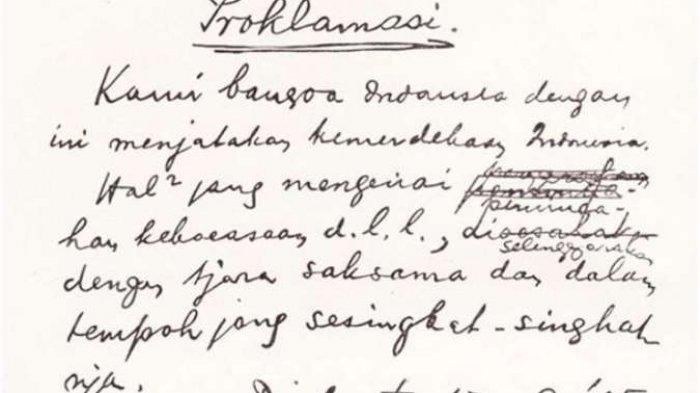 Proklamasi.
Kami bangsa Indonesia dengan
ini menjatakan kemerdekaan Indonesia.
Hal² jang mengenai
peminda-
han keboeasaan d.l.l.,
selenggarakan
dengan tjara saksama dan dalam
tempoh jang sesingkat-singkat-
nja.